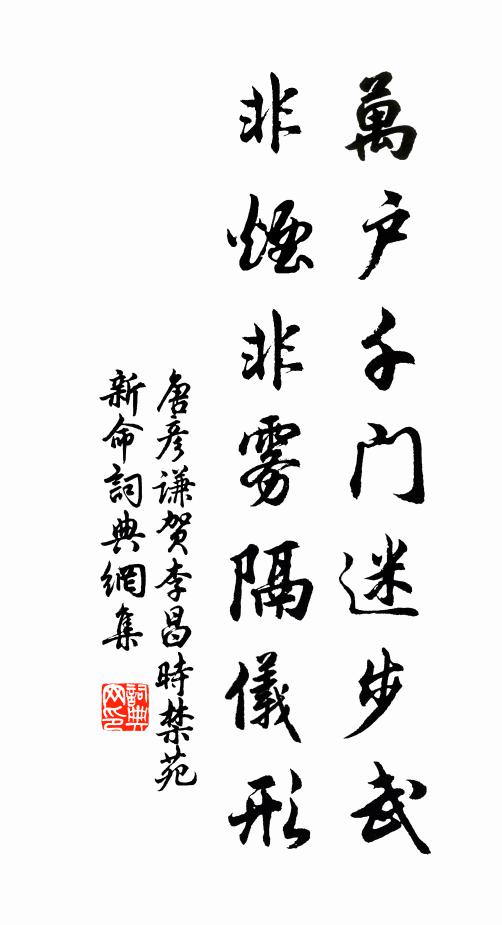 萬户千門迷步武
非煙非雾隔儀形
唐彦谦贺李昌時禁苑
新命詞典網集
詞典网印